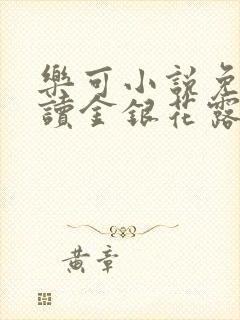 樂可小說免
讀金銀花露
黃章